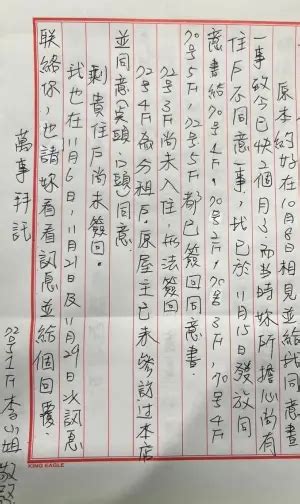 原本約好在10月8日相見並給我同意
一事致今已快2個月了而当時妳所擔心尚有
住戶不同意一事,我已於11月15日發放同
意書給70号4F,70号2F,70号3F,70号4F
70号5F,72号5F都已簽回同意書.
72号3F尚未入住,無法簽回
72号4F為分租戶.原屋主已來參訪过本店
並同意(口頭)同意.
剩貴住戶尚未簽回.
我也在11月6日,11月21日及11月29日次訊息
联絡你,也請妳看看訊息並給個回覆.
萬事拜託
72号1F李小姐敬啟
KING EAGLE